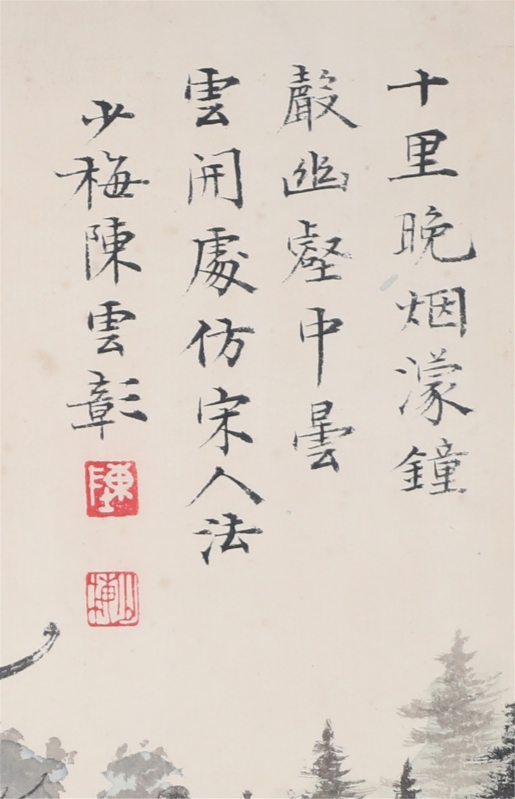 十里晚烟濛鐘
聲幽壑中曇
雲開處仿宋人法
少梅陳雲彰
陳